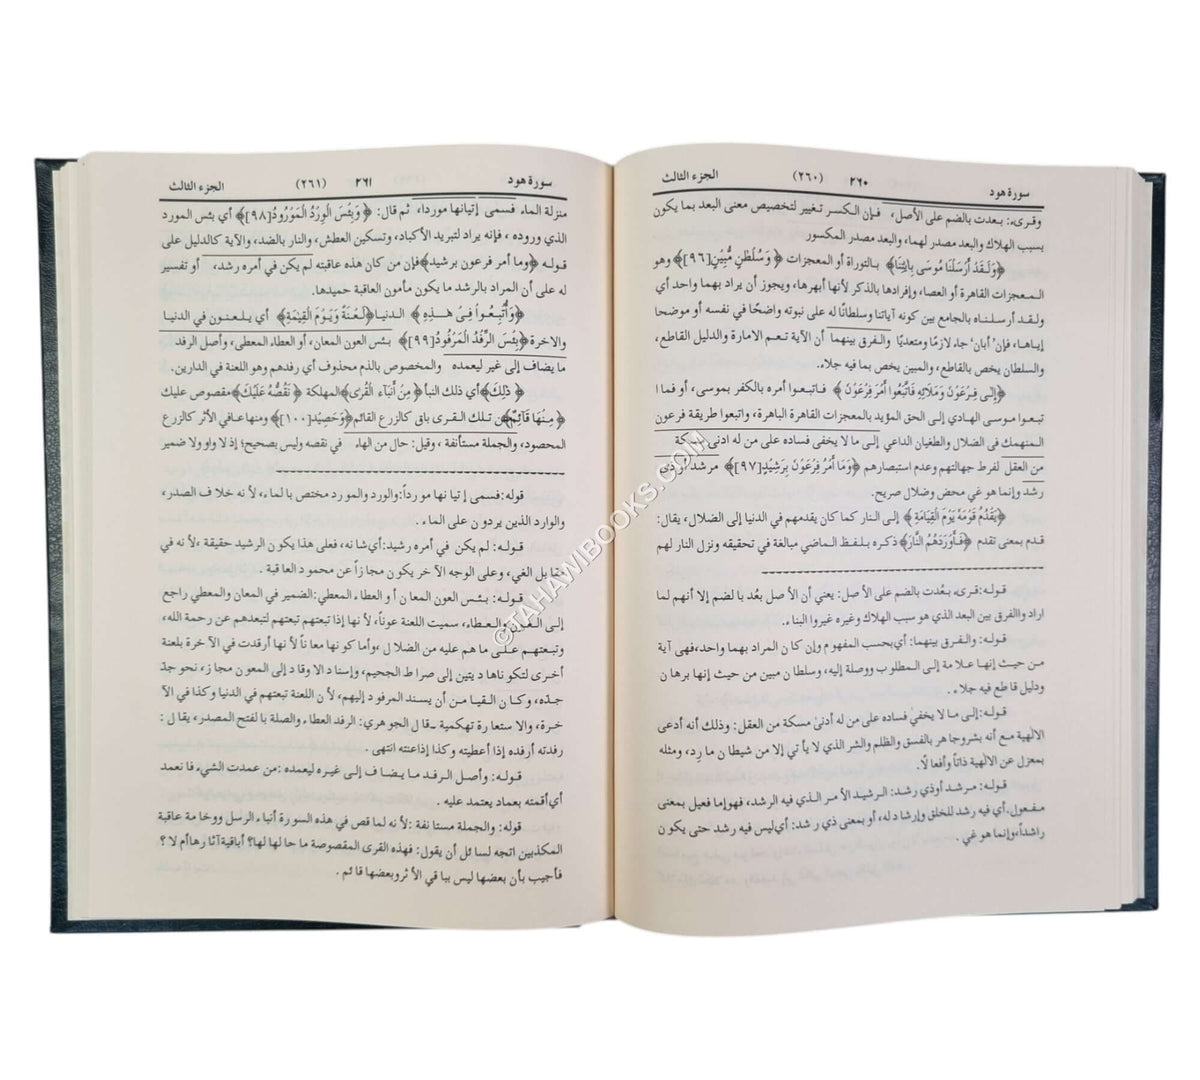 سورة هود ٢٦٠ (٢٦٠) الجزء الثالث
وقرىء: بعدت بالضم على الأصل، فإن الكسر تغيير لتخصيص معنى البعد بما يكون
بسبب الهلاك والبعد مصدر لهما، والبعد مصدر المكسور
﴿وَلَقَدْ أَرْسَلْنَا مُوسَى بِآيَٰتِنَا﴾ بالتوراة أو المعجزات ﴿وَسُلْطَٰنٍ مُّبِينٍ[٩٦]﴾ وهو
المعجزات القاهرة أو العصا، وإفرادها بالذكر لأنها أبهرها، ويجوز أن يراد بهما واحد أي
ولقد أرسلناه بالجامع بين كونه آياتنا وسلطانًا له على نبوته واضحًا في نفسه أو موضحا
إياها، فإن "أبان" جاء لازمًا ومتعديًا والفرق بينهما أن الآية تعم الامارة والدليل القاطع،
والسلطان يخص بالقاطع، والمبين يخص بما فيه جلاء.
﴿إِلَى فِرْعَوْنَ وَمَلَائِهِ فَاتَّبَعُوا أَمْرَ فِرْعَوْنَ﴾ فاتبعوا أمره بالكفر بموسى، أو فما ا
تبعوا موسى الهادي إلى الحق المؤيد بالمعجزات القاهرة الباهرة، واتبعوا طريقة فرعون
المنهمك في الضلال والطغيان الداعي إلى ما لا يخفى فساده على من له ادنى مسكة
من العقل لفرط جهالتهم وعدم استبصارهم ﴿وَمَا أَمْرُ فِرْعَوْنَ بِرَشِيدٍ[٩٧]﴾ مرشد أو ذي
رشد وإنما هو غي محض وضلال صريح.
﴿يَقْدُمُ قَوْمَهُ يَوْمَ الْقِيَامَةِ﴾ إلى النار كما كان يقدمهم في الدنيا إلى الضلال، يقال:
قدم بمعنى تقدم ﴿فَأَوْرَدَهُمُ النَّارَ﴾ ذكره بلفظ الماضي مبالغة في تحقيقه ونزل النار لهم
قوله: قرىء بعُدت بالضم على الأصل: يعني أن الأصل بعُد بالضم إلا أنهم لما
اراد والفرق بين البعد الذي هو سبب الهلاك وغيره غيروا البناء.
قوله: والفرق بينهما: أي بحسب المفهوم وإن كان المراد بهما واحد، فهى آية
من حيث إنها علامة إلى المطلوب ووصلة إليه، وسلطان مبين من حيث إنها برهان
ودليل قاطع فيه جلاء.
قوله: إلى ما لا يخفىٰ فساده على من له أدنىٰ مسكة من العقل: وذلك أنه أدعى
الالهية مع أنه بشر وجاهر بالفسق والظلم والشر الذي لا يأتي إلا من شيطان مارد، ومثله
بمعزل عن الالهية ذاتاً وأفعالًا.
قوله: مرشد أوذي رشد: الرشيد الأمر الذي فيه الرشد، فهو إما فعيل بمعنى
مفعول، أي فيه رشد للخلق وإرشاد له، أو بمعنى ذي رشد: أي ليس فيه رشد حتى يكون
راشداً، وإنما هو غي.
سورة هود ٢٦١ (٢٦١) الجزء الثالث
منزلة الماء فسمى إتيانها موردا، ثم قال: ﴿وَبِئْسَ الْوِرْدُ الْمَوْرُودُ[٩٨]﴾ أي بئس المورد
الذي وروده، فإنه يراد لتبريد الأكباد، وتسكين العطش، والنار بالضد، والآية كالدليل على
قوله ﴿وما أمر فرعون برشيد﴾ فإن من كان هذه عاقبته لم يكن في أمره رشد، أو تفسير
له على أن المراد بالرشد ما يكون مأمون العاقبة حميدها.
﴿وَأُتْبِعُوا فِى هَٰذِهِ﴾ الدنيا ﴿لَعْنَةً وَيَوْمَ الْقِيَٰمَةِ﴾ أي يلعنون في الدنيا
والاخرة ﴿بِئْسَ الرِّفْدُ الْمَرْفُودُ[٩٩]﴾ بئس العون المعان، أو العطاء المعطى، وأصل الرفد
ما يضاف إلى غير ليعمده والمخصوص بالذم محذوف أي رفدهم وهو اللعنة في الدارين.
﴿ذَلِكَ﴾ أي ذلك النبأ ﴿مِنْ أَنبَآءِ الْقُرَى﴾ المهلكة ﴿نَقُصُّهُ عَلَيْكَ﴾ مقصوص عليك
﴿مِنْهَا قَآئِمٌ﴾ من تلك القرى باق كالزرع القائم ﴿وَحَصِيدٌ[١٠٠]﴾ ومنها عافي الأثر كالزرع
المحصود، والجملة مستأنفة، وقيل: حال من الهاء في نقصه وليس بصحيح؛ إذ لا واو ولا ضمير
قوله: فسمى إتيانها مورداً: والورد والمورد مختص بالماء، لأنه خلاف الصدر،
والوارد الذين يردون على الماء.
قوله: لم يكن في أمره رشيد: أي شانه، فعلى هذا يكون الرشيد حقيقة، لأنه في
مقابل الغي، وعلى الوجه الآخر يكون مجازاً عن محمود العاقبة.
قوله: بئس العون المعان أو العطاء المعطي: الضمير في المعان والمعطي راجع
إلى العون والعطاء، سميت اللعنة عوناً، لأنها إذا تبعتهم تبعتهم لتبعدهم عن رحمة الله،
وتبعتهم على ما هم عليه من الضلال، وأما كونها معاناً لأنها أرفدت في الآخرة بلعنة
أخرى لتكونا هاديتين إلى صراط الجحيم، وإسناد الاوفاد إلى المعون مجاز، نحو جدّ
جدّه، وكان القياس أن يسند المرفود إليهم، لأن اللعنة تبعتهم في الدنيا وكذا في الآ
خرة، والاستعارة تهكمية ـ قال الجوهري: الرفد العطاء والصلة بالفتح المصدر، يقال:
رفدته أرفده إذا أعطيته وكذا إذا عنته انتهى.
قوله: وأصل الرفد ما يضاف إلى غيره ليعمده: من عمدت الشيء فانعمد
أي أقمته بعماد يعتمد عليه.
قوله: والجملة مستانفة: لأنه لما قص في هذه السورة أنباء الرسل ووخامة عاقبة
المكذبين اتجه لسائل أن يقول: فهذه القرى المقصوصة ما حالها لها؟ أباقية آثارها أم لا؟
فأجيب بأن بعضها ليس بباقي الأثر وبعضها قائم.
©TAHAWIBOOKS.COM